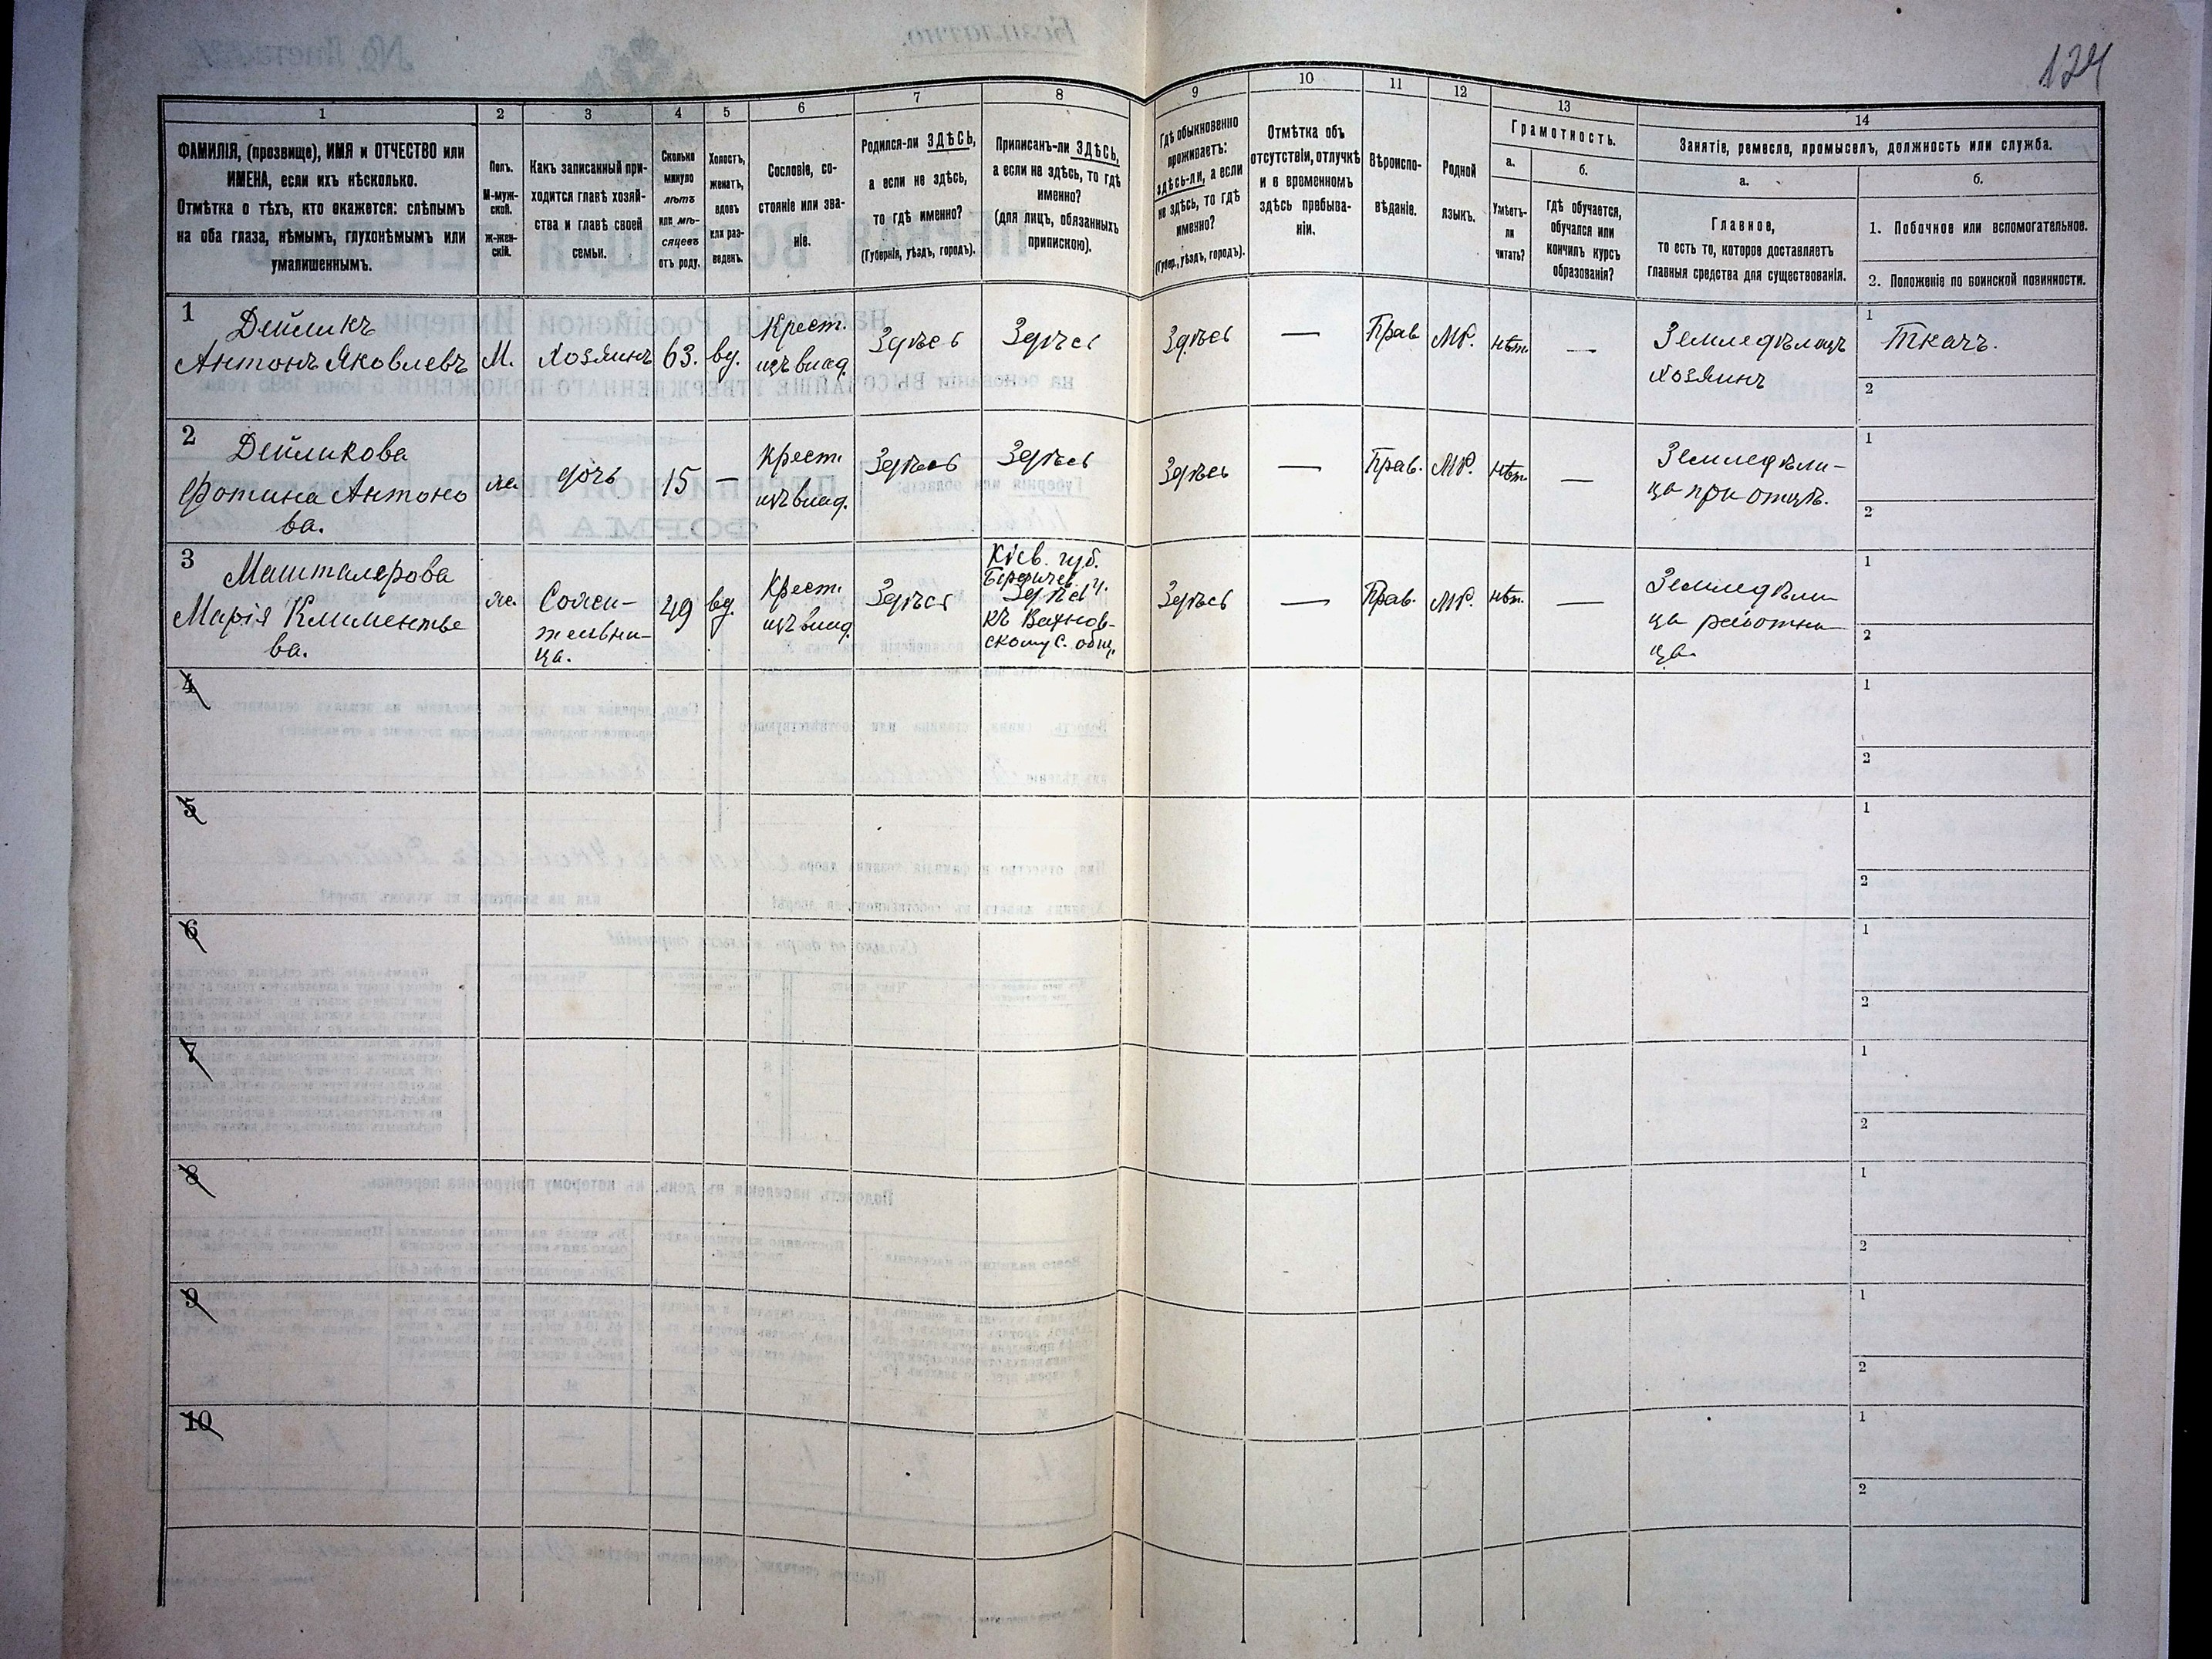 124
1
2
3
4
5
6
7
8
9
10
11
12
13
14
ФАМИЛІЯ, (прозвище), ИМЯ и ОТЧЕСТВО или
ИМЕНА, если ихъ нѣсколько.
Отмѣтка о тѣхъ, кто окажется: слѣпымъ
на оба глаза, нѣмымъ, глухонѣмымъ или
умалишеннымъ.
Полъ.
М-муж-
ской.
Ж-жен-
скій.
Какъ записанный при-
ходится главѣ хозяй-
ства и главѣ своей
семьи.
Сколько
минуло
лѣтъ
или мѣ-
сяцевъ
отъ роду.
Холостъ,
женатъ,
вдовъ
или раз-
веденъ.
Сословіе, со-
стояніе или зва-
ніе.
Родился-ли ЗДѢСЬ,
а если не здѣсь,
то гдѣ именно?
(Губернія, уѣздъ, городъ).
Приписанъ-ли ЗДѢСЬ,
а если не здѣсь, то гдѣ
именно?
(для лицъ, обязанныхъ
припискою).
Гдѣ обыкновенно
проживаетъ:
здѣсь-ли, а если
не здѣсь, то гдѣ
именно?
(Губер., уѣздъ, городъ).
Отмѣтка объ
отсутствіи, отлучкѣ
и о временномъ
здѣсь пребыва-
ніи.
Вѣроиспо-
вѣданіе.
Родной
языкъ.
Грамотность.
а.
б.
Умѣетъ-
ли
читать?
гдѣ обучается,
обучался или
кончилъ курсъ
образованія?
Занятіе, ремесло, промыселъ, должность или служба.
а.
б.
Главное,
то есть то, которое доставляетъ
главныя средства для существованія.
1. Побочное или вспомогательное.
2. Положеніе по воинской повинности.
1
Дейликъ
Антонъ Яковлевъ
М.
Хозяинъ
63.
вд.
Крест.
изъ влад.
Здѣсь
Здѣсь
Здѣсь
—
Прав
МР.
нѣт.
—
Земледѣлецъ
хозяинъ
1
Ткачъ.
2
2
Дейликова
Фотина Антоно
ва.
ж.
дочь
15
—
Крест.
изъ влад.
Здѣсь
Здѣсь
Здѣсь
—
Прав.
МР.
нѣт.
—
Земледѣли-
ца при отцѣ.
1
2
3
Машталерова
Марія Климентье
ва.
ж.
Сожи-
тельни-
ца.
49
вд.
Крест.
изъ влад.
Здѣсь
Кіев. губ.
Бердичев. у.
Здѣсь
къ Вахнов-
скому с. общ.
Здѣсь
—
Прав.
МР.
нѣт.
—
Земледѣли
ца работни
ца.
1
2
4
1
2
5
1
2
6
1
2
7
1
2
8
1
2
9
1
2
10
1
2